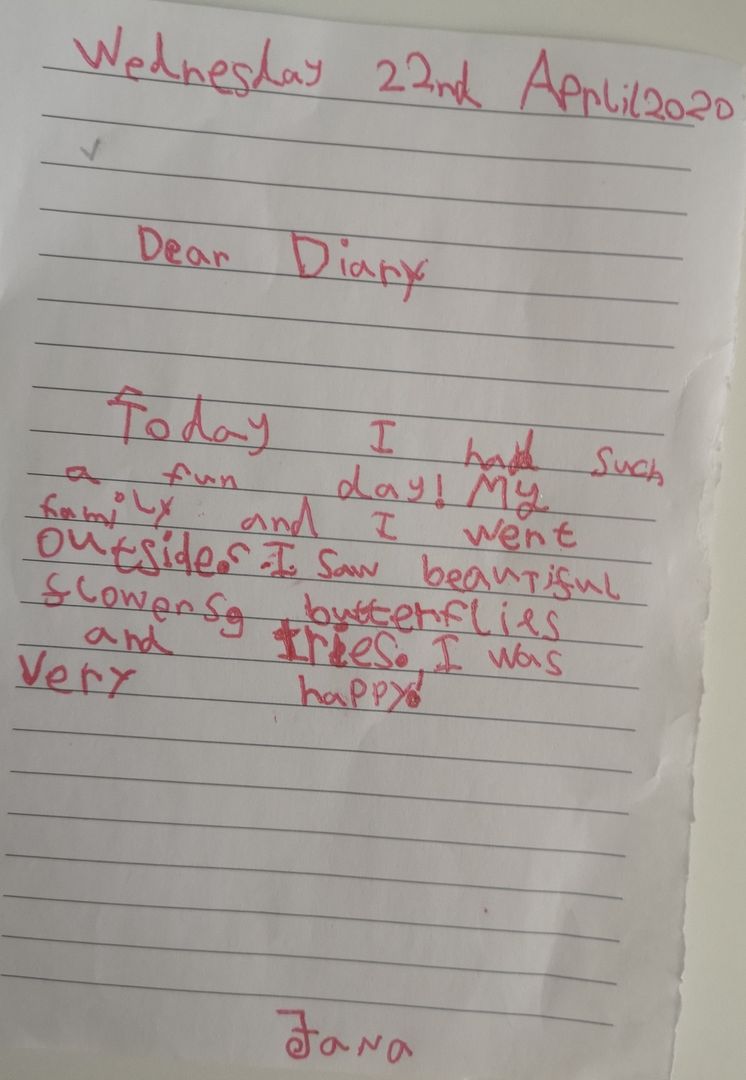 Wednesday 22nd Aprlil 2020
Dear Diary
Today I had such
a fun day! My
family and I went
outside. I saw beautiful
flowers, butterflies
and tries. I was
very happy!
Jana